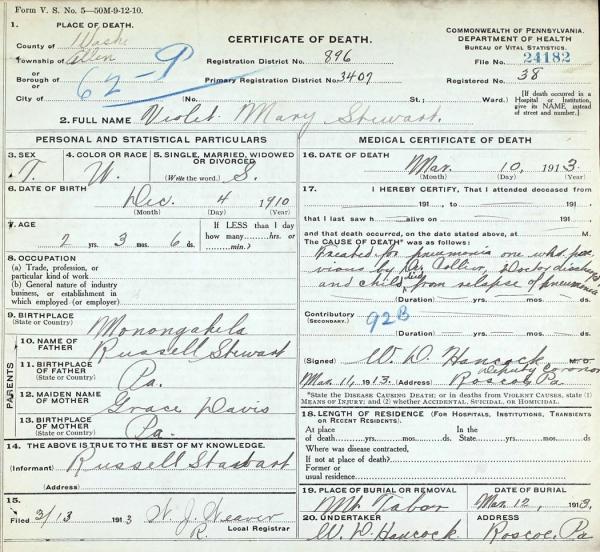 Form V. S. No. 5—50M-9-12-10.
1. PLACE OF DEATH.
County of Wash
Township of Allen
or
Borough of
or
City of
62-9
CERTIFICATE OF DEATH.
Registration District No. 896
Primary Registration District No. 3407
(No. St.; Ward.)
COMMONWEALTH OF PENNSYLVANIA.
DEPARTMENT OF HEALTH
BUREAU OF VITAL STATISTICS.
File No. 24182
Registered No. 38
[If death occurred in a Hospital or Institution, give its NAME, instead of street and number.]
2. FULL NAME Violet Mary Stewart.
PERSONAL AND STATISTICAL PARTICULARS
3. SEX
4. COLOR OR RACE
W.
5. SINGLE, MARRIED, WIDOWED OR DIVORCED
(Write the word.) S.
6. DATE OF BIRTH
Dec. 4 1910
(Month) (Day) (Year)
7. AGE
2 yrs. 3 mos. 6 ds.
If LESS than 1 day
how many hrs. or
min.?
8. OCCUPATION
(a) Trade, profession, or
particular kind of work
(b) General nature of industry
business, or establishment in
which employed (or employer)
9. BIRTHPLACE
(State or Country)
Monongahela
PARENTS
10. NAME OF FATHER
Russell Stewart
11. BIRTHPLACE OF FATHER
(State or Country)
Pa.
12. MAIDEN NAME OF MOTHER
Grace Davis
13. BIRTHPLACE OF MOTHER
(State or Country)
Pa.
14. THE ABOVE IS TRUE TO THE BEST OF MY KNOWLEDGE.
(Informant) Russell Stewart
(Address)
15.
Filed 3/13 1913 W. J. Weaver
R. Local Registrar
MEDICAL CERTIFICATE OF DEATH
16. DATE OF DEATH
Mar. 10, 1913.
(Month) (Day) (Year)
17. I HEREBY CERTIFY, That I attended deceased from
191 , to 191 ,
that I last saw h alive on 191 ,
and that death occurred, on the date stated above, at M.
The CAUSE OF DEATH* was as follows:
Treated for pneumonia one wk. pre
vious by Dr. Collier, Doctor discharged
and child died from relapse of pneumonia
(Duration) yrs. mos. ds.
Contributory
(SECONDARY.)
92B
(Duration) yrs. mos. ds.
(Signed) W. D. Hancock M.D.
Deputy Coroner
Mar. 11, 1913. (Address) Roscoe, Pa
*State the DISEASE CAUSING DEATH; or in deaths from VIOLENT CAUSES, state (1) MEANS OF INJURY; and (2) whether ACCIDENTAL, SUICIDAL, OR HOMICIDAL.
18. LENGTH OF RESIDENCE (FOR HOSPITALS, INSTITUTIONS, TRANSIENTS OR RECENT RESIDENTS).
At place In the
of death yrs. mos. ds. State yrs. mos. ds.
Where was disease contracted,
if not at place of death?
Former or
usual residence
19. PLACE OF BURIAL OR REMOVAL
Mt. Tabor
DATE OF BURIAL
Mar. 12, 1913.
20. UNDERTAKER
W. D. Hancock
ADDRESS
Roscoe, Pa